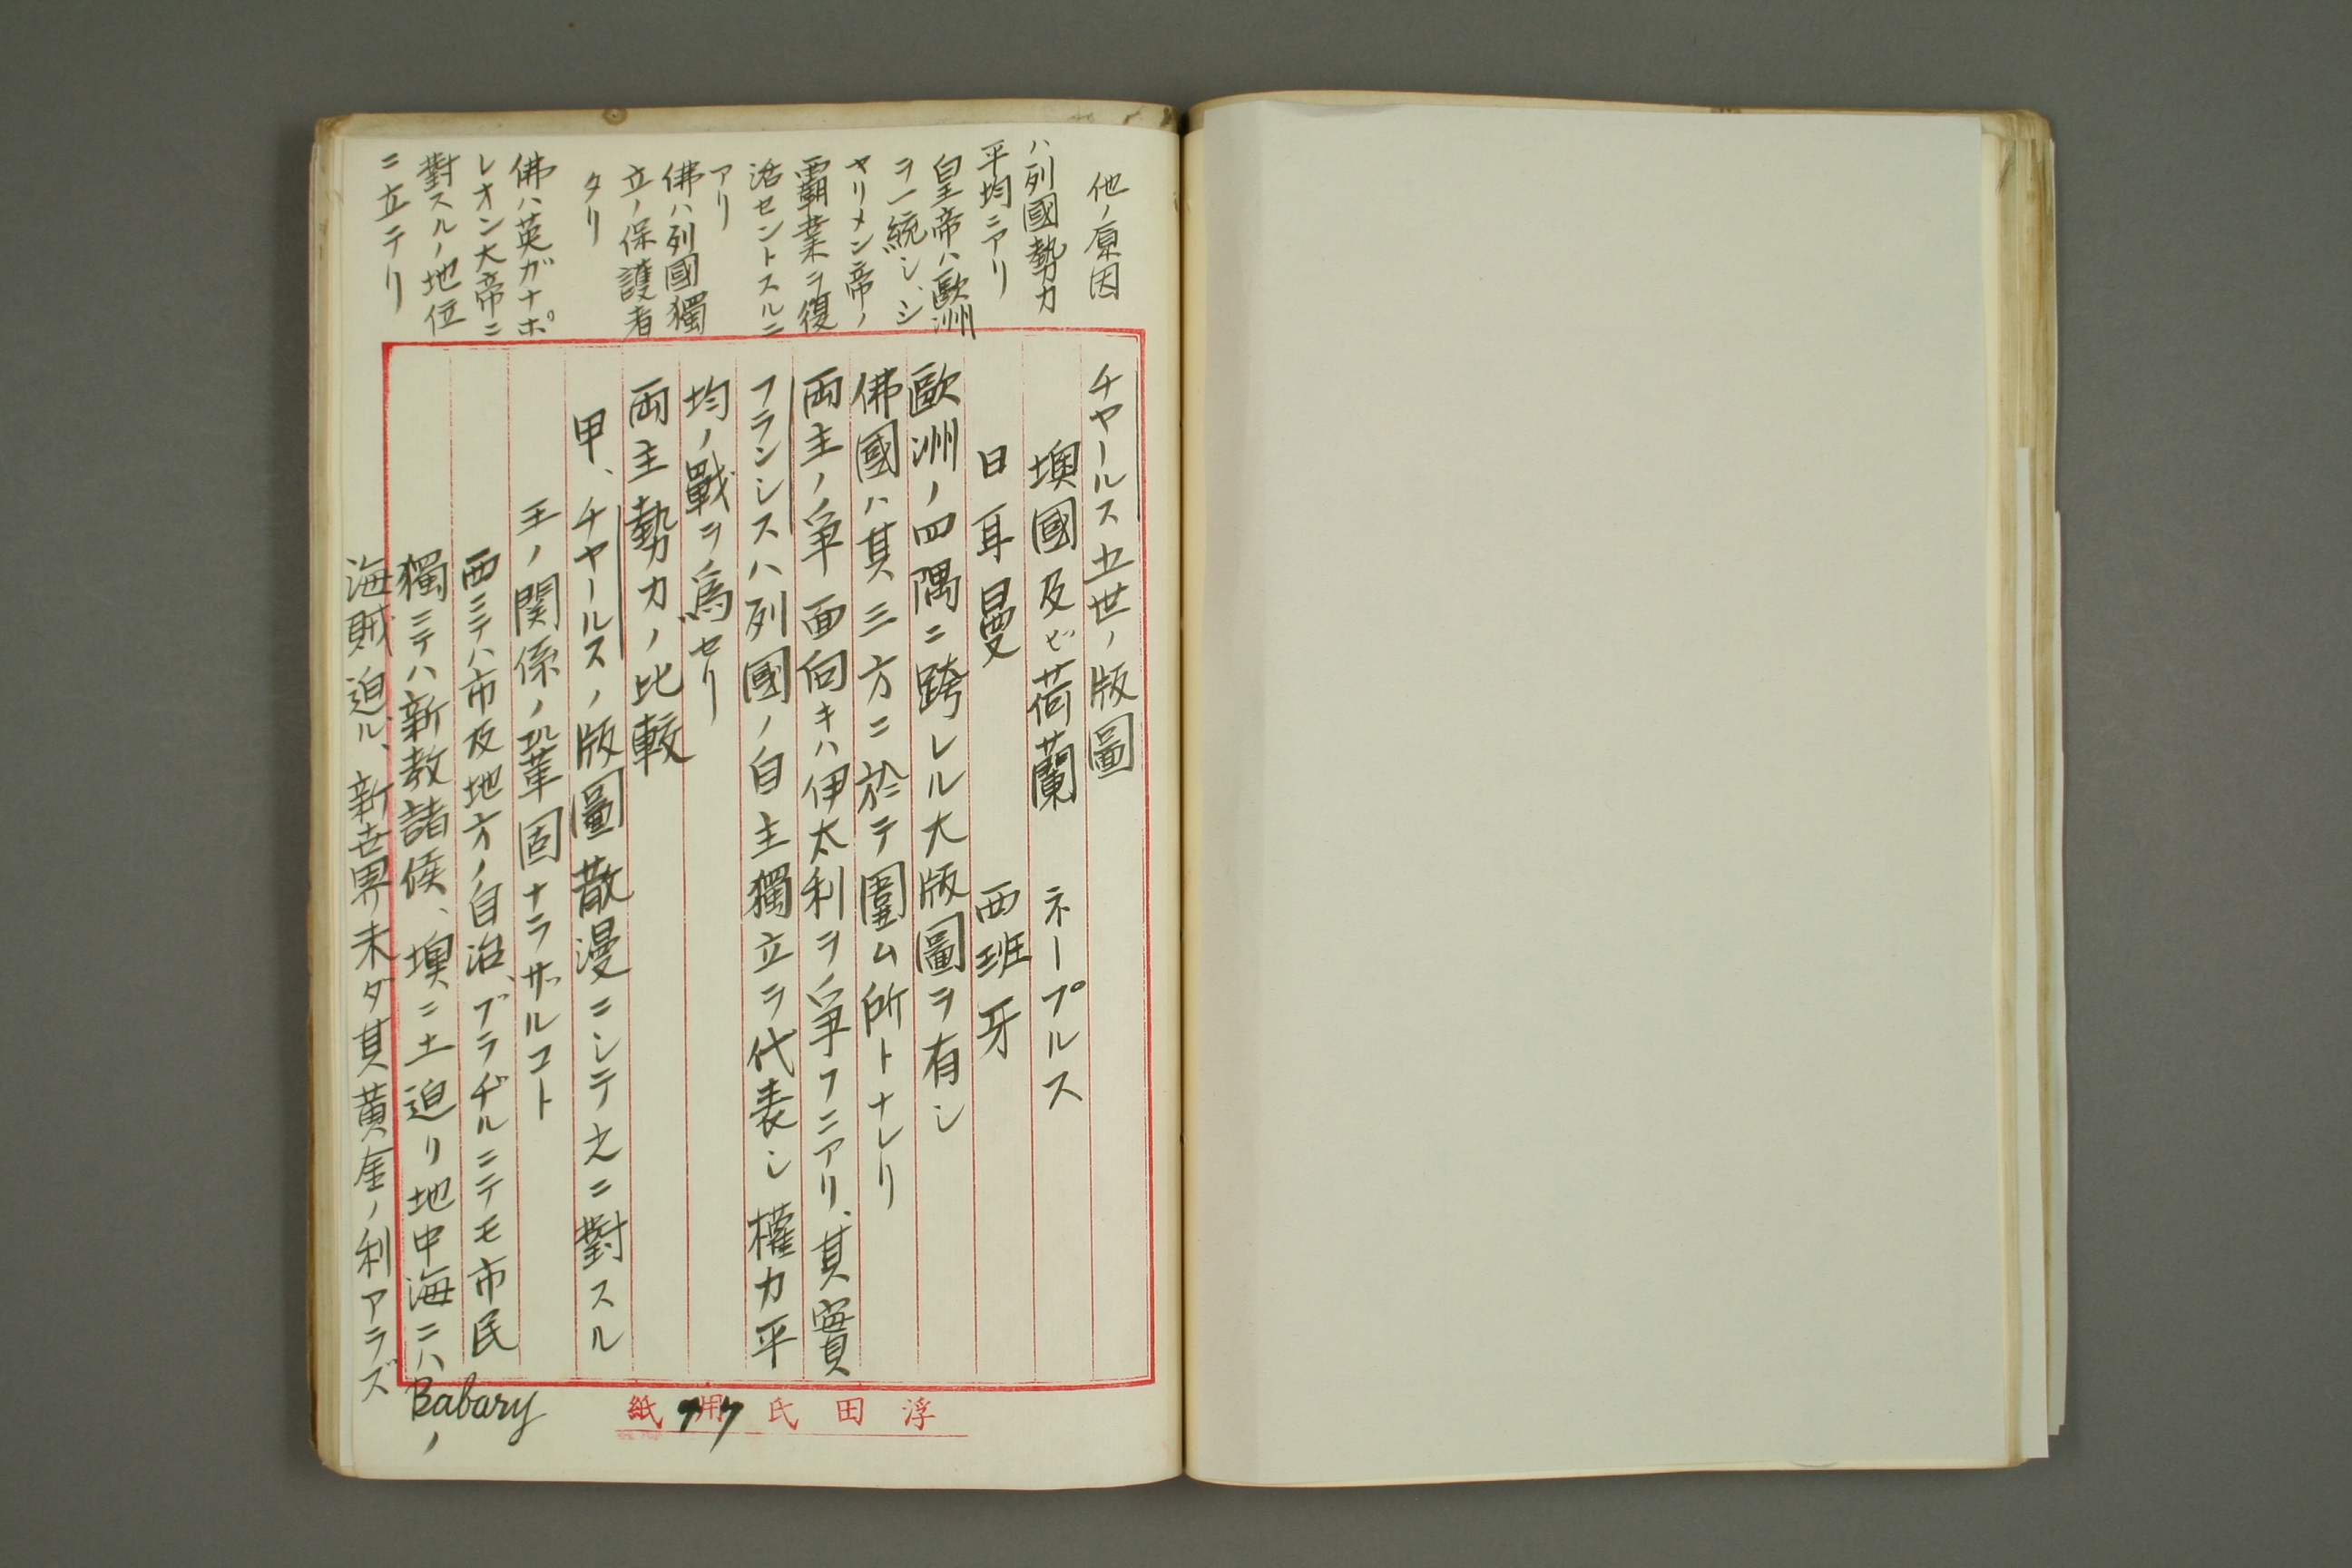 他ノ原因
ハ列國勢力
平均ニアリ
皇帝ハ歐洲
ヲ一統シ、シ
ヤリメン帝ノ
覇業ヲ復
活セントスルニ
アリ
佛ハ列國獨
立ノ保護者
タリ
佛ハ英ガナポ
レオン大帝ニ
對スルノ地位
ニ立テリ
チャールス五世ノ版圖
墺國及ビ荷蘭　ネープルス
日耳曼　西班牙
歐洲ノ四隅ニ跨レル大版圖ヲ有シ
佛國ハ其三方ニ於テ圍ム所トナレリ
両主ノ爭面向キハ伊太利ヲ爭フニアリ、其實
フランシスハ列國ノ自主獨立ヲ代表シ權力平
均ノ戰ヲ爲セリ
両主勢力ノ比較
甲、チャールスノ版圖散漫ニシテ之ニ對スル
王ノ関係ノ鞏固ナラザルコト
西ニテハ市及地方ノ自治、ブラヂルニテモ市民
獨ニテハ新教諸侯、墺ニ土迫リ地中海ニハBabaryノ
海賊迫ル、新世界未ダ其黄金ノ利アラズ
浮田氏用紙
77